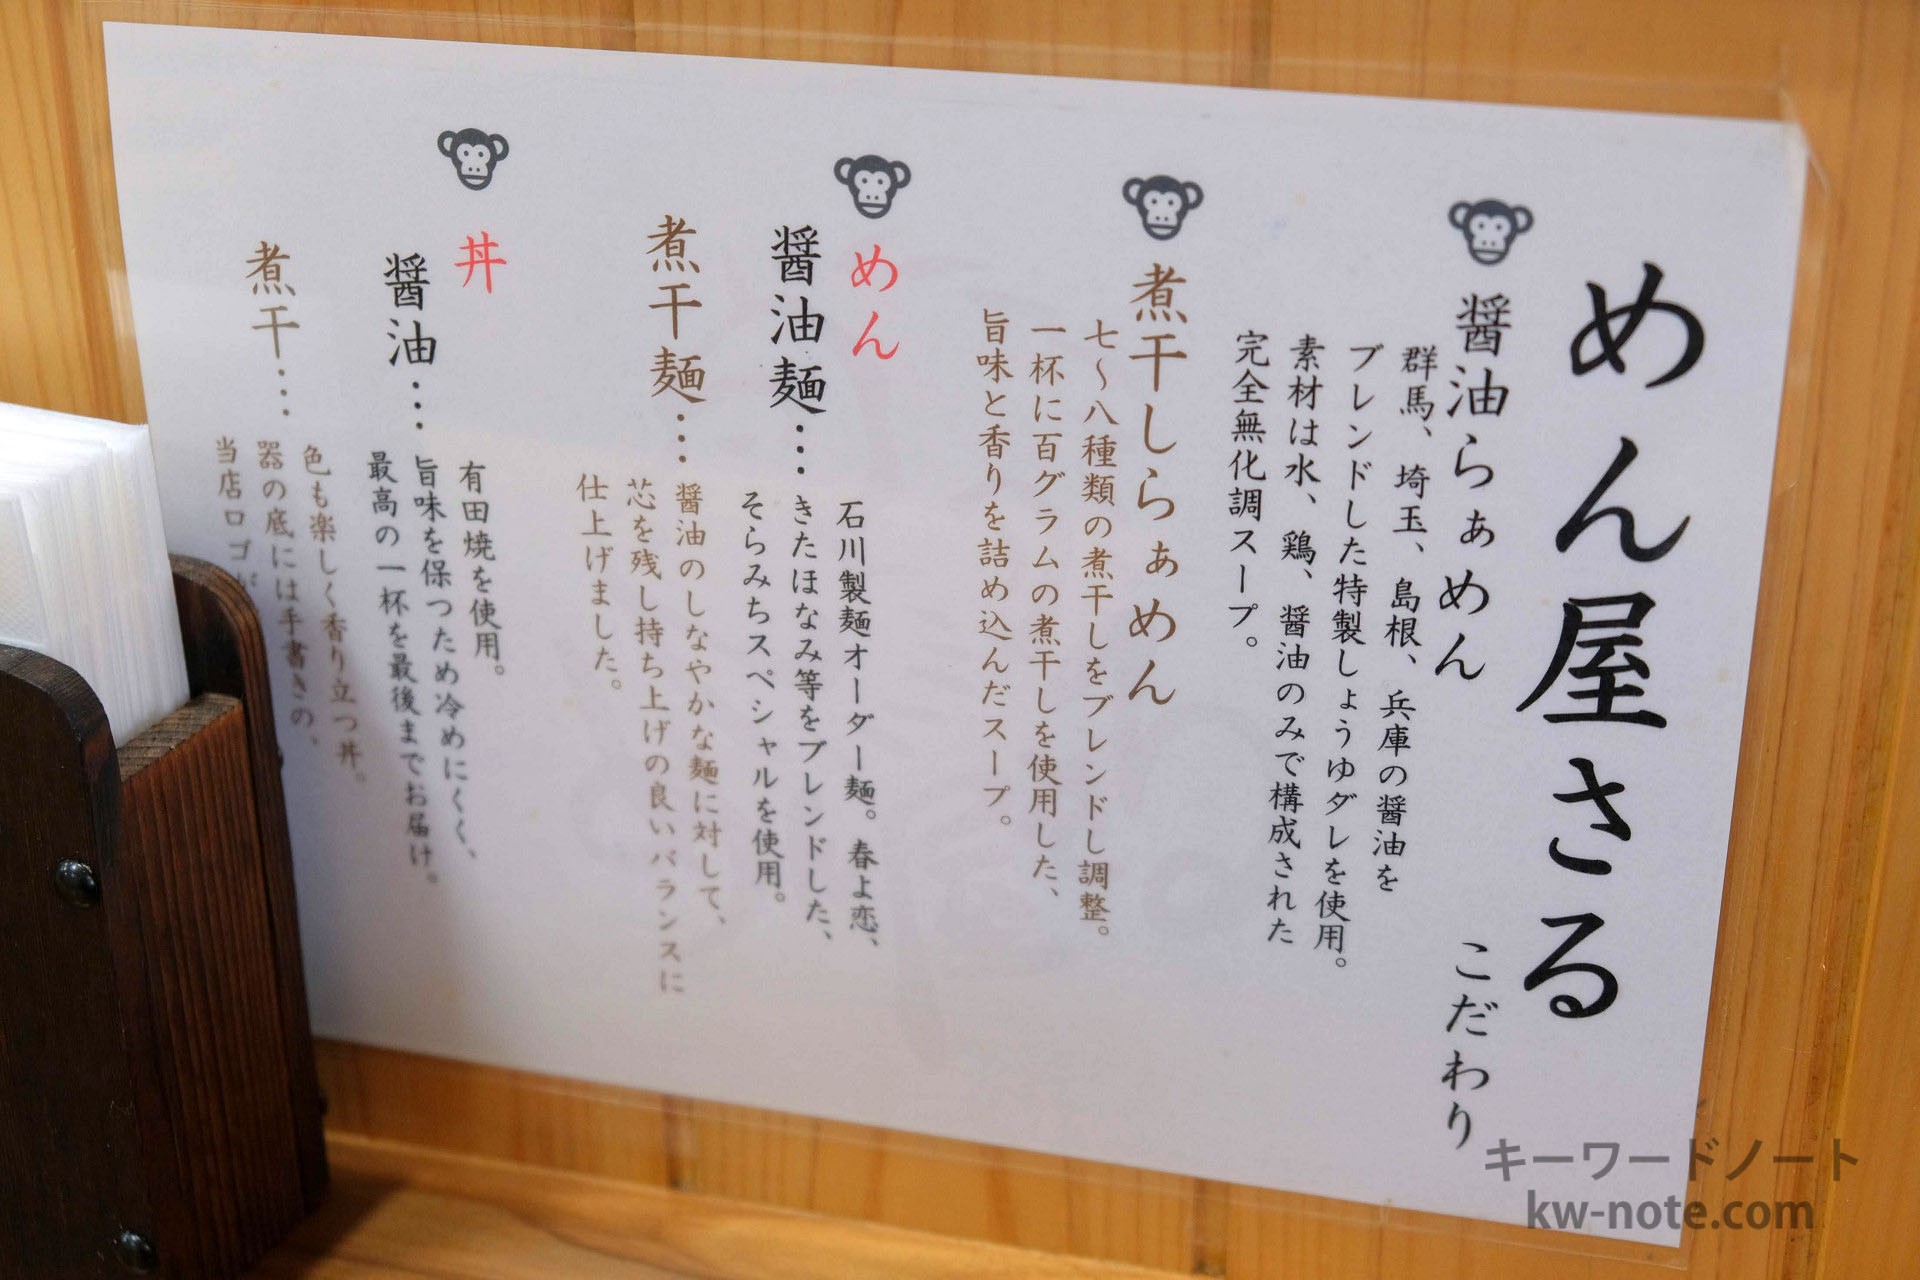 めん屋さる
こだわり
醤油らぁめん
群馬、埼玉、島根、兵庫の醤油を
ブレンドした特製しょうゆダレを使用。
素材は水、鶏、醤油のみで構成された
完全無化調スープ。
煮干しらぁめん
七〜八種類の煮干しをブレンドし調整。
一杯に百グラムの煮干しを使用した、
旨味と香りを詰め込んだスープ。
めん
醤油麺…
石川製麺オーダー麺。春よ恋、
きたほなみ等をブレンドした、
そらみちスペシャルを使用。
煮干麺…
醤油のしなやかな麺に対して、
芯を残し持ち上げの良いバランスに
仕上げました。
丼
醤油…
有田焼を使用。
旨味を保つため冷めにくく、
最高の一杯を最後までお届け。
煮干…
色も楽しく香り立つ丼。
器の底には手書きの、
当店ロゴが
キーワードノート
kw-note.com